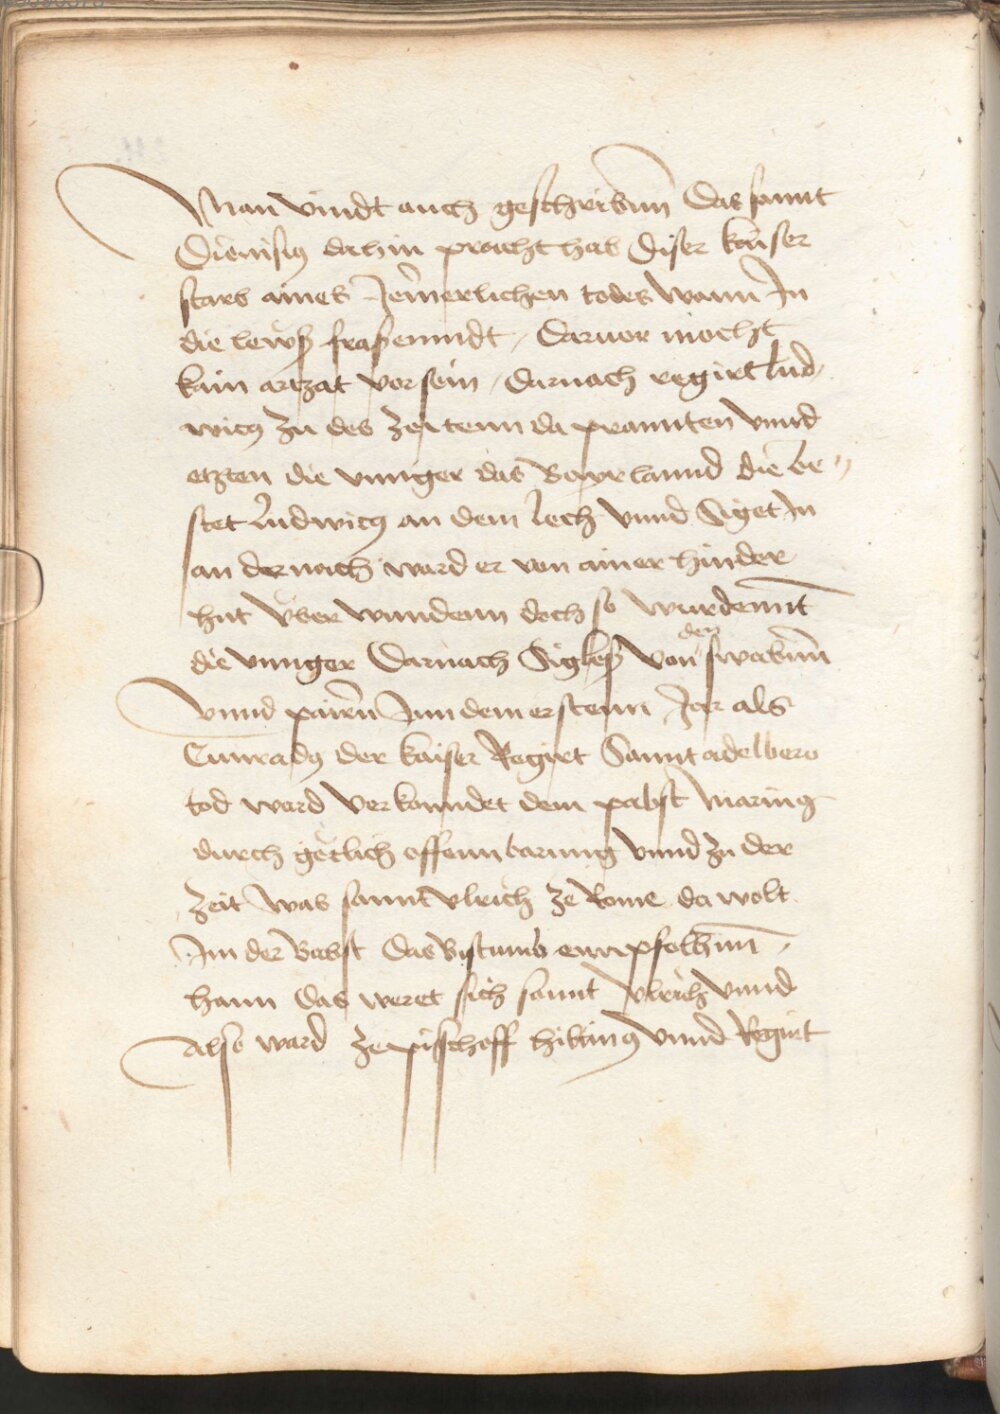 Man vindt auch geschribnn Das sannt
Dienisiꝯ dahin pracht hab Diser kaiser
starb aines Jemerlichen todes wann In
die lewß frassenndt / Daruor mocht
kain artzat vor sein / Darnach regirt lud
wicꝯ zu des zeitenn da prannten vnnd
etzten die vnnger das Bayrlannd die be
stet ludwicꝯ an dem lech vnnd Siget In
an dernach ward er von ainer hinder
hut vber wundenn doch so wurdennt
die vnnger Darnach Sigloß von den swabnn
vnnd pairen Inn dem erstenn Jar als
Cunradꝯ der kaiser Regirt Sannt adelbero
tod ward verkonndet dem pabst marinꝯ
durch götlich offennbarung vnnd zu der
zeit was sannt vlrich ze Rome da wolt
Im der Babst das Bistumb empfolhnn /
hann das weret sich sannt vlrich vnnd
Also ward ze pisschoff hiltinꝯ vnnd Regirt